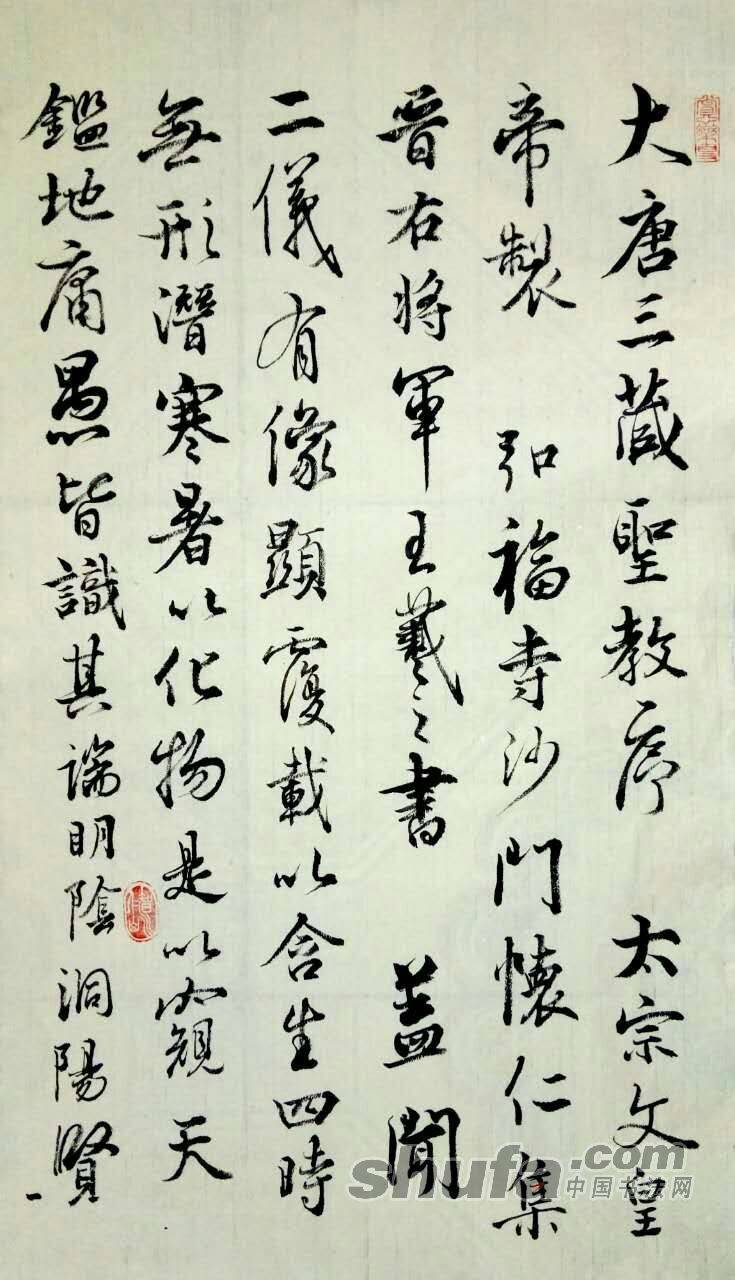 大唐三蔵聖教序 太宗文皇
帝製 弘福寺沙門懐仁集
晉右将軍王羲之書 蓋聞
二儀有像顯覆載以含生四時
無形潛寒暑以化物是以窺天
鑑地庸愚皆識其端明陰洞陽賢
shufa.com
中国书法网